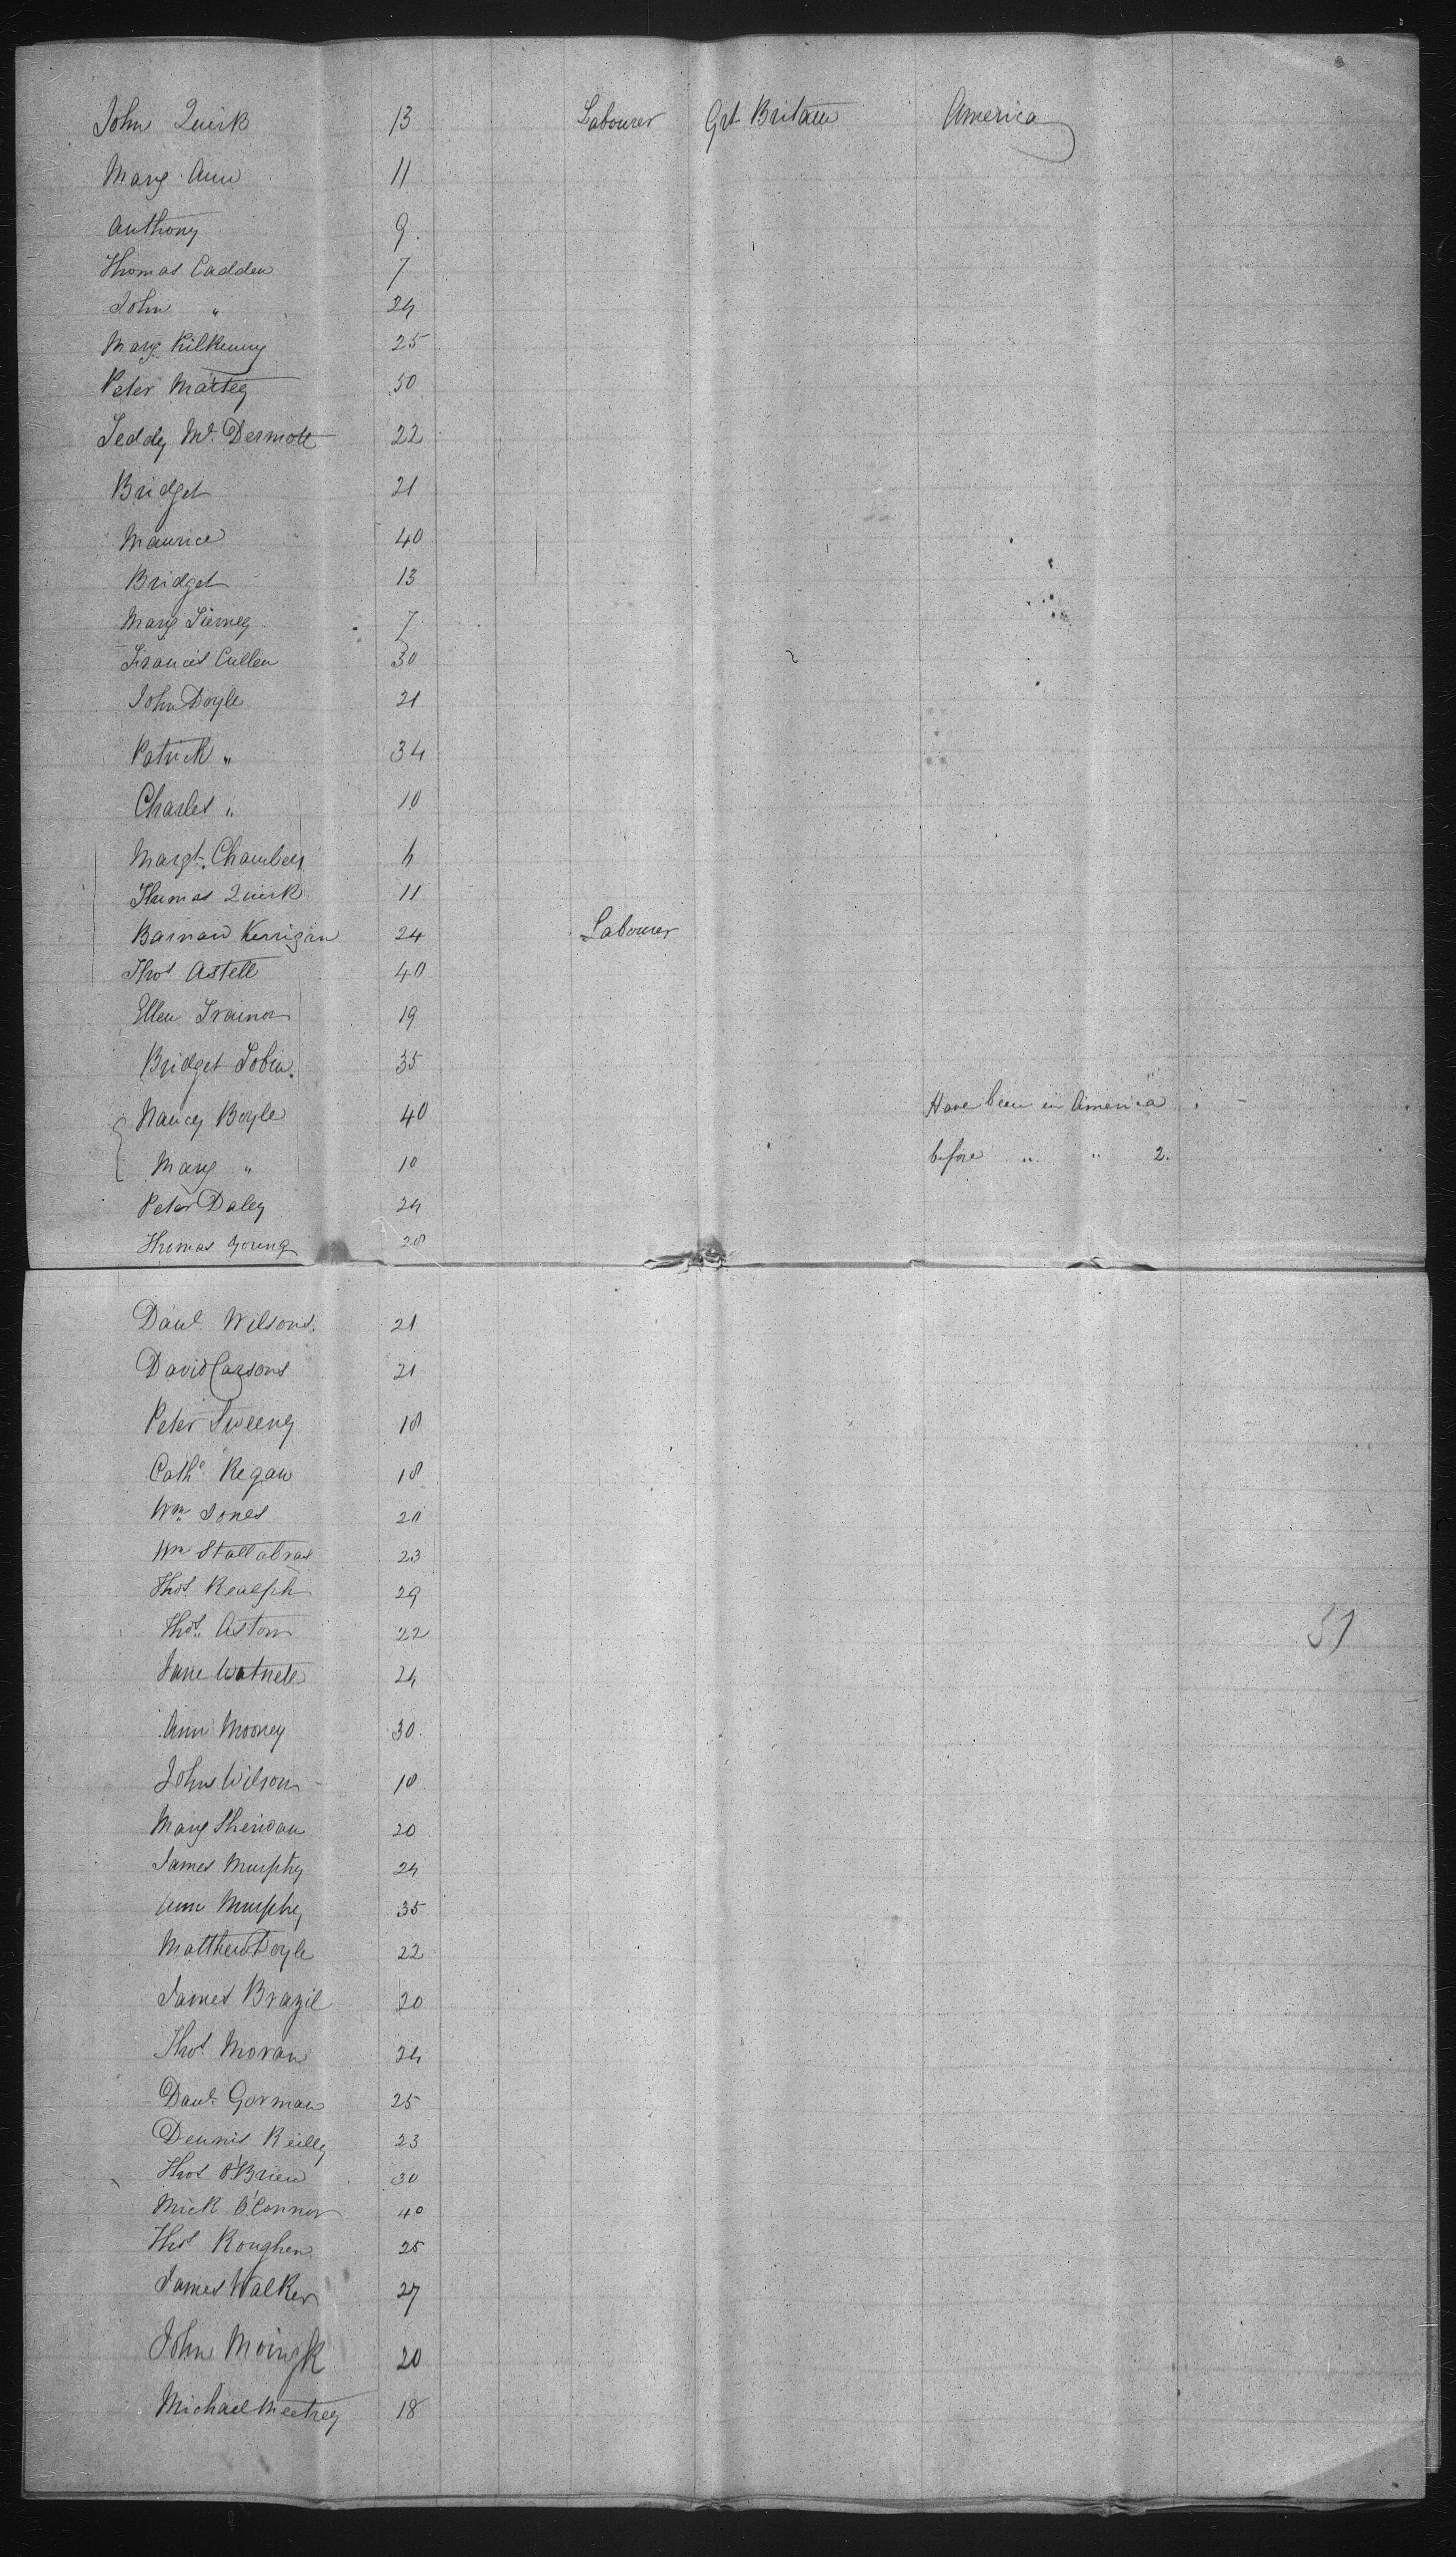 John Quirk 13 Labourer Grt Britain America
Mary Ann 11
Anthony 9
Thomas Cadden 7
John " 24
Mary Kilkenny 25
Peter 50
Teddy Mc Dermott 22
Bridget 21
Maurice 40
Bridget 13
Mary Tierney 7
Francis Cullen 30
John Doyle 21
Patrick " 34
Charles " 10
Margt. Chambers
Thomas Quirk 11
Barnard Kerrigan 24 Labourer
Thos Astell 40
Ellen Trainor 19
Bridget Tobin. 35
Nancy Boyle 40 Have been in America
Mary " 10 before " " 2.
Peter Daley 24
Thomas Young 20
Danl. Wilsons. 21
David Carsons 21
Peter Sweeny 18
Cathe Regan 18
Wm. Jones 20
Wm Stallabras 23
Thos. 29
Thos. Aston 22
Jane 24
Ann Mooney 30
John Wilson 18
Mary Sheridan 20
James Murphy 24
Ann Murphy 35
Matthew Doyle 22
James Brazil 20
Thos. Moran 24
Danl. Gorman 25
Dennis Reilly 23
Thos O'Brien 30
Mick O'Connor 40
Thos Roughen 25
James Walker 27
John 20
Michael 18
51